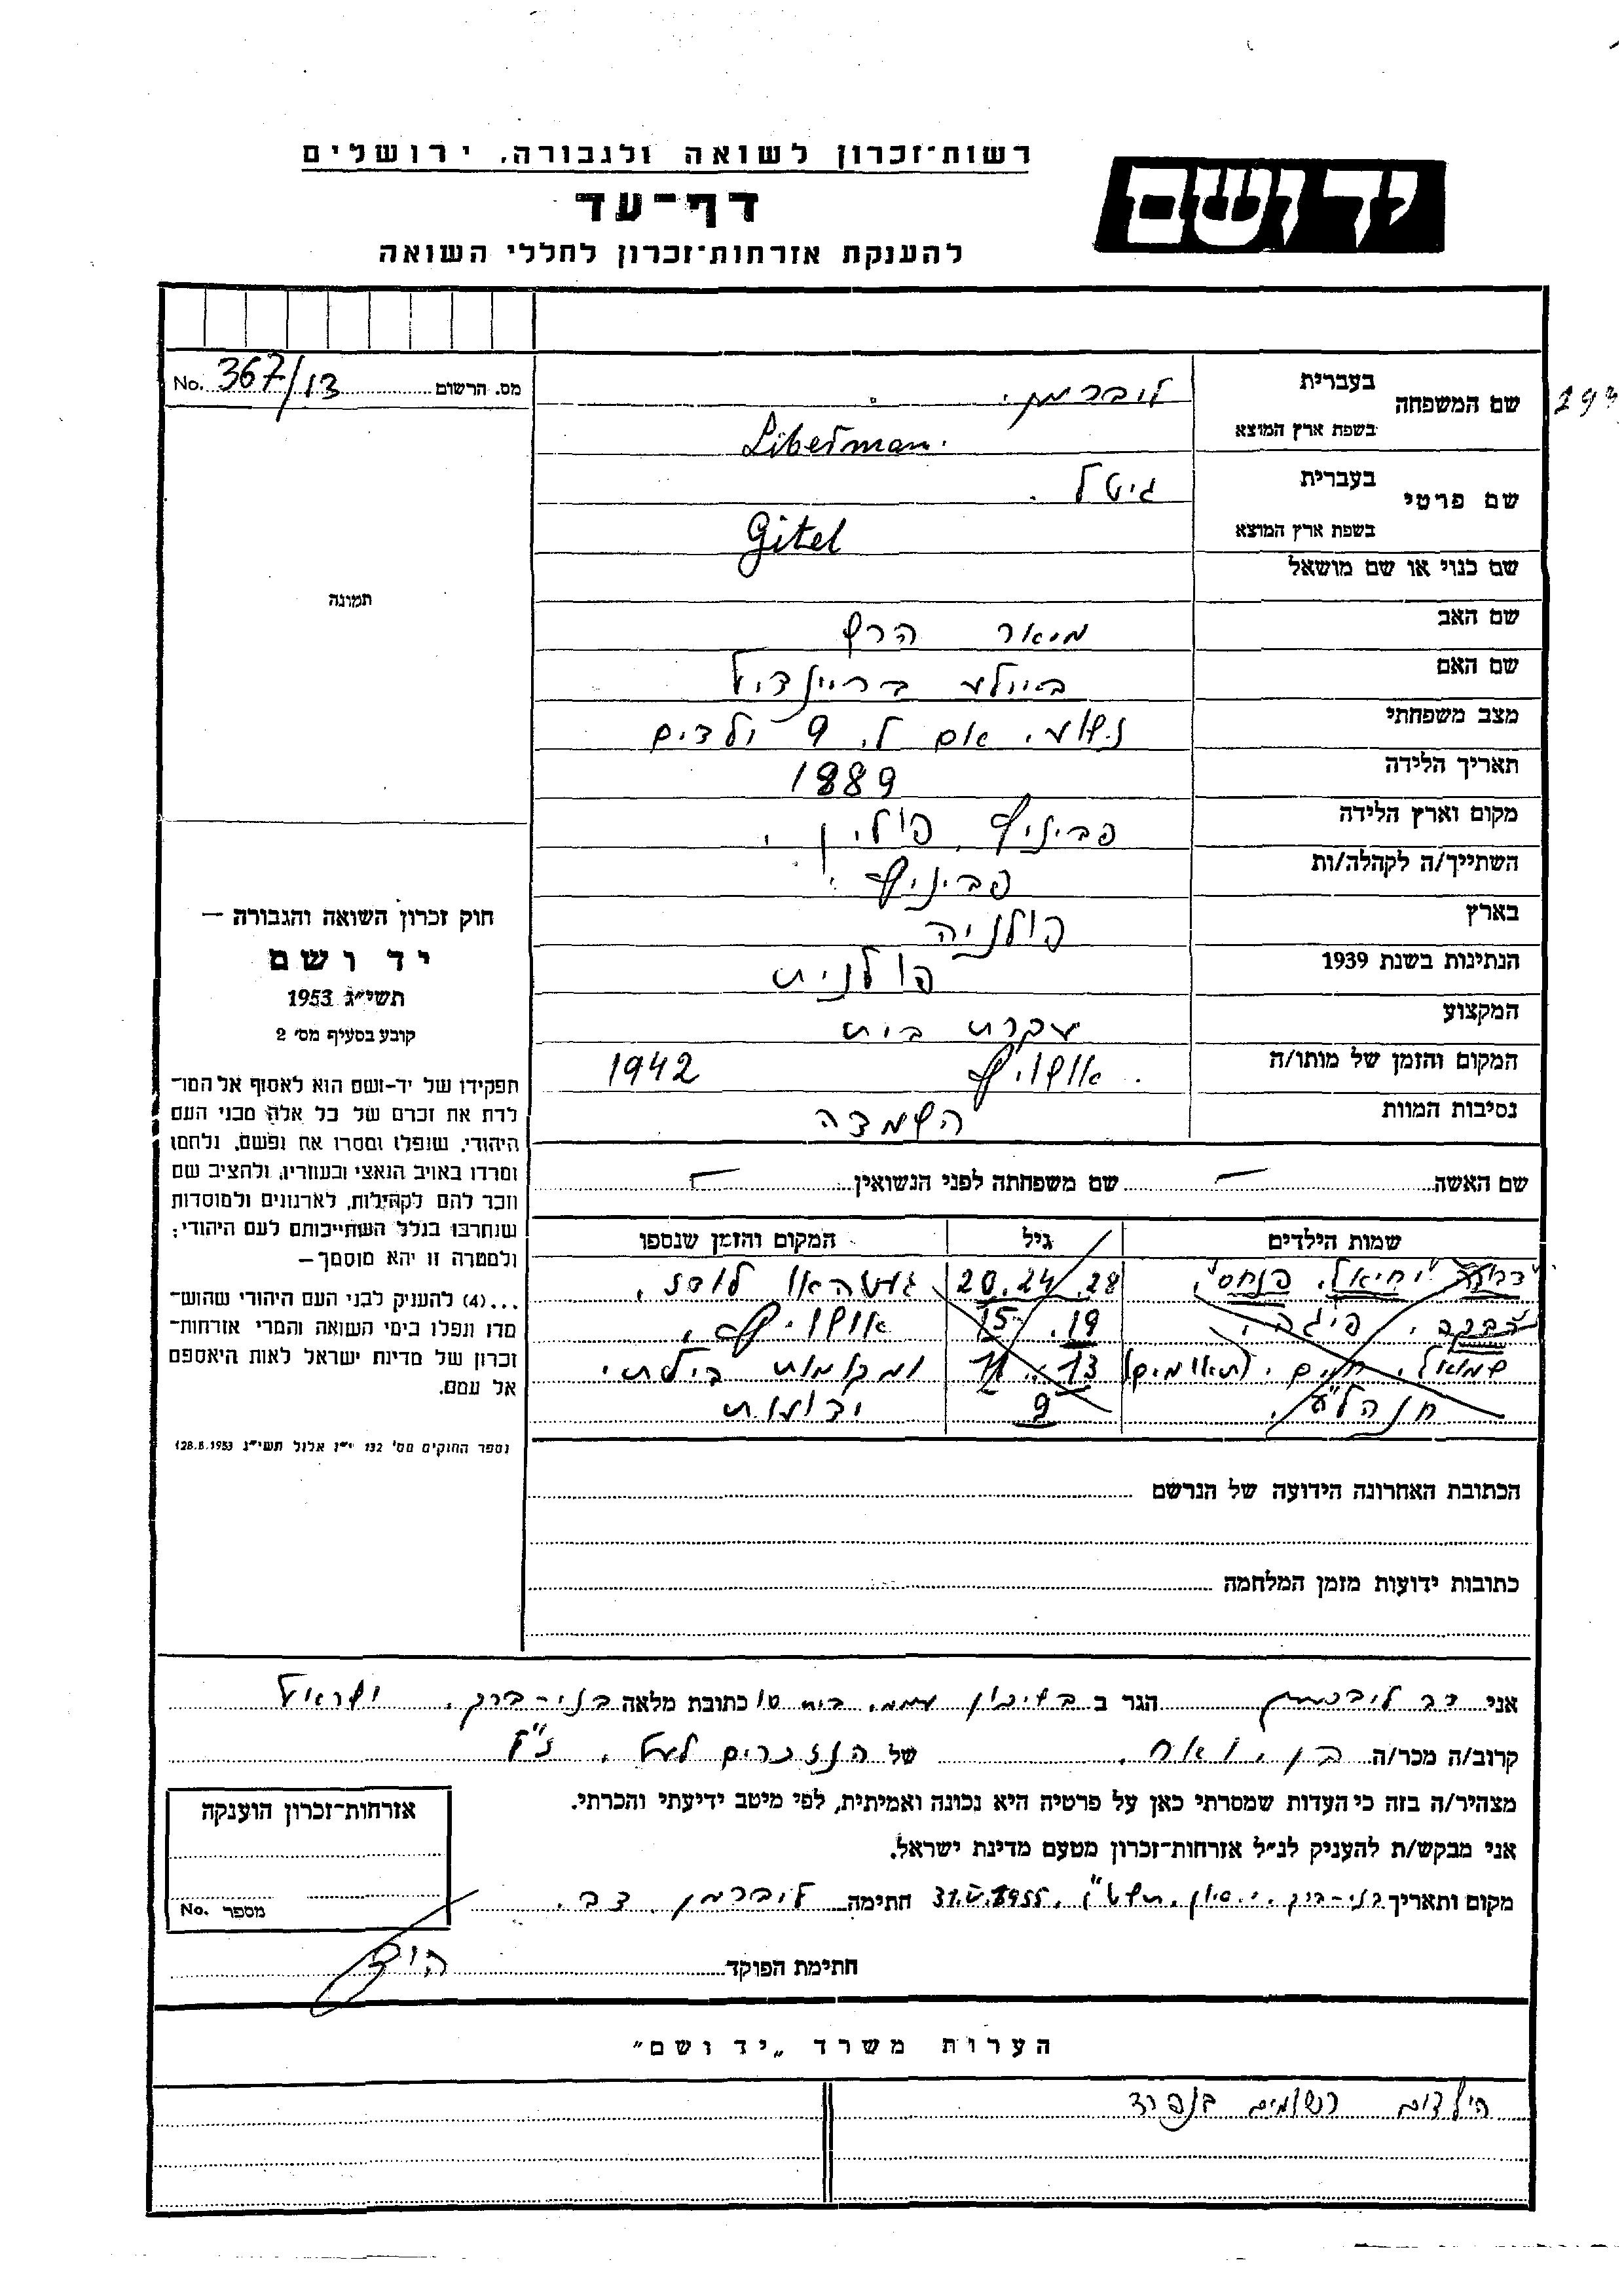 רשות־זכרון לשואה ולגבורה, ירושלים
יד ושם
דף־עד
להענקת אזרחות־זכרון לחללי השואה
מס. הרשום 367/13 No.
שם המשפחה
בעברית ליברמן.
בשפת ארץ המוצא Liberman.
שם פרטי
בעברית גיטל.
בשפת ארץ המוצא Gitel
שם כנוי או שם מושאל
תמונה
שם האב מיאר הרש
שם האם ביילע בריינדיל
מצב משפחתי נשוי. אם ל. 9 ילדים
תאריך הלידה 1889
מקום וארץ הלידה פולין.
השתייך/ה לקהלה/ות
בארץ פולניה
הנתינות בשנת 1939 פולנית
המקצוע עקרת בית
המקום והזמן של מותו/ה 1942
נסיבות המוות השמדה
שם האשה
שם משפחתה לפני הנשואין
חוק זכרון השואה והגבורה —
יד ושם
תשי״ג 1953
קובע בסעיף מס׳ 2
תפקידו של יד-ושם הוא לאסוף אל המו־
לדת את זכרם של כל אלה מבני העם
היהודי, שנפלו ומסרו את נפשם, נלחמו
ומרדו באויב הנאצי ובעוזריו, ולהציב שם
וזכר להם לקהילות, לארגונים ולמוסדות
שנחרבו בגלל השתייכותם לעם היהודי;
ולמטרה זו יהא מוסמך—
...(4) להענקת לבני העם היהודי שהוש־
מדו ונפלו בימי השואה והמרי אזרחות־
זכרון של מדינת ישראל לאות היאספם
אל עמם.
נספר החוקים מס׳ 132 י״ז אלול תשי״ג 28.8.1953)
שמות הילדים גיל המקום והזמן שנספו
יחיאל, פנחס, 28. 24. 20
רבקה, פיגה, 19. 15
שמואל, חיים. (תאומים) 13. 11 ומקומות בילתי
9 ידועות
הכתובת האחרונה הידועה של הנרשם
כתובות ידועות מזמן המלחמה
אני דב ליברמן הגר ב בשיכון עממי. בית 10 כתובת מלאה בני-ברק. ישראל
קרוב/ה מכר/ה בן. ואח. של הנזכרים לעל. ז״ל
מצהיר/ה בזה כי העדות שמסרתי כאן על פרטיה היא נכונה ואמיתית, לפי מיטב ידיעתי והכרתי.
אני מבקש/ת להעניק לנ״ל אזרחות־זכרון מטעם מדינת ישראל.
מקום ותאריך בני-ברק. י. סיון. תשט״ו. 31.V.1955 חתימה ליברמן דב.
חתימת הפוקד
אזרחות־זכרון הוענקה
מספר No.
הערות משרד „יד ושם״
הילדים רשומים בנפרד